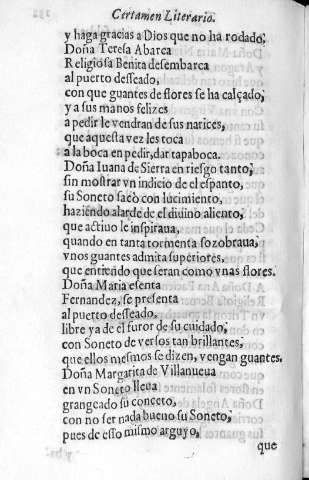 Certamen Literario.
y haga gracias a Dios que no ha rodado;
Doña Teresa Abarca
Religiosa Benita desembarca
al puerto desseado,
con que guantes de flores se ha calçado,
y a sus manos felizes
a pedir le vendran de sus narices,
que aquesta vez les toca
a la boca en pedir, dar tapaboca.
Doña Iuana de Sierra en riesgo tanto;
sin mostrar vn indicio de el espanto,
su Soneto sacò con lucimiento,
haziendo alarde de el diuino aliento,
que actiuo le inspiraua,
quando en tanta tormenta sozobraua,
vnos guantes admita superiores,
que entiendo que seran como vnas flores.
Doña Maria esenta
Fernandez, se presenta
al puerto desseado,
libre ya de el furor de su cuidado,
con Soneto de versos tan brillantes,
que ellos mesmos se dizen, vengan guantes.
Doña Margarita de Villanueua
en vn Soneto lleua
grangeado su conceto,
con no ser nada bueno su Soneto;
pues de esto mismo arguyo,
que